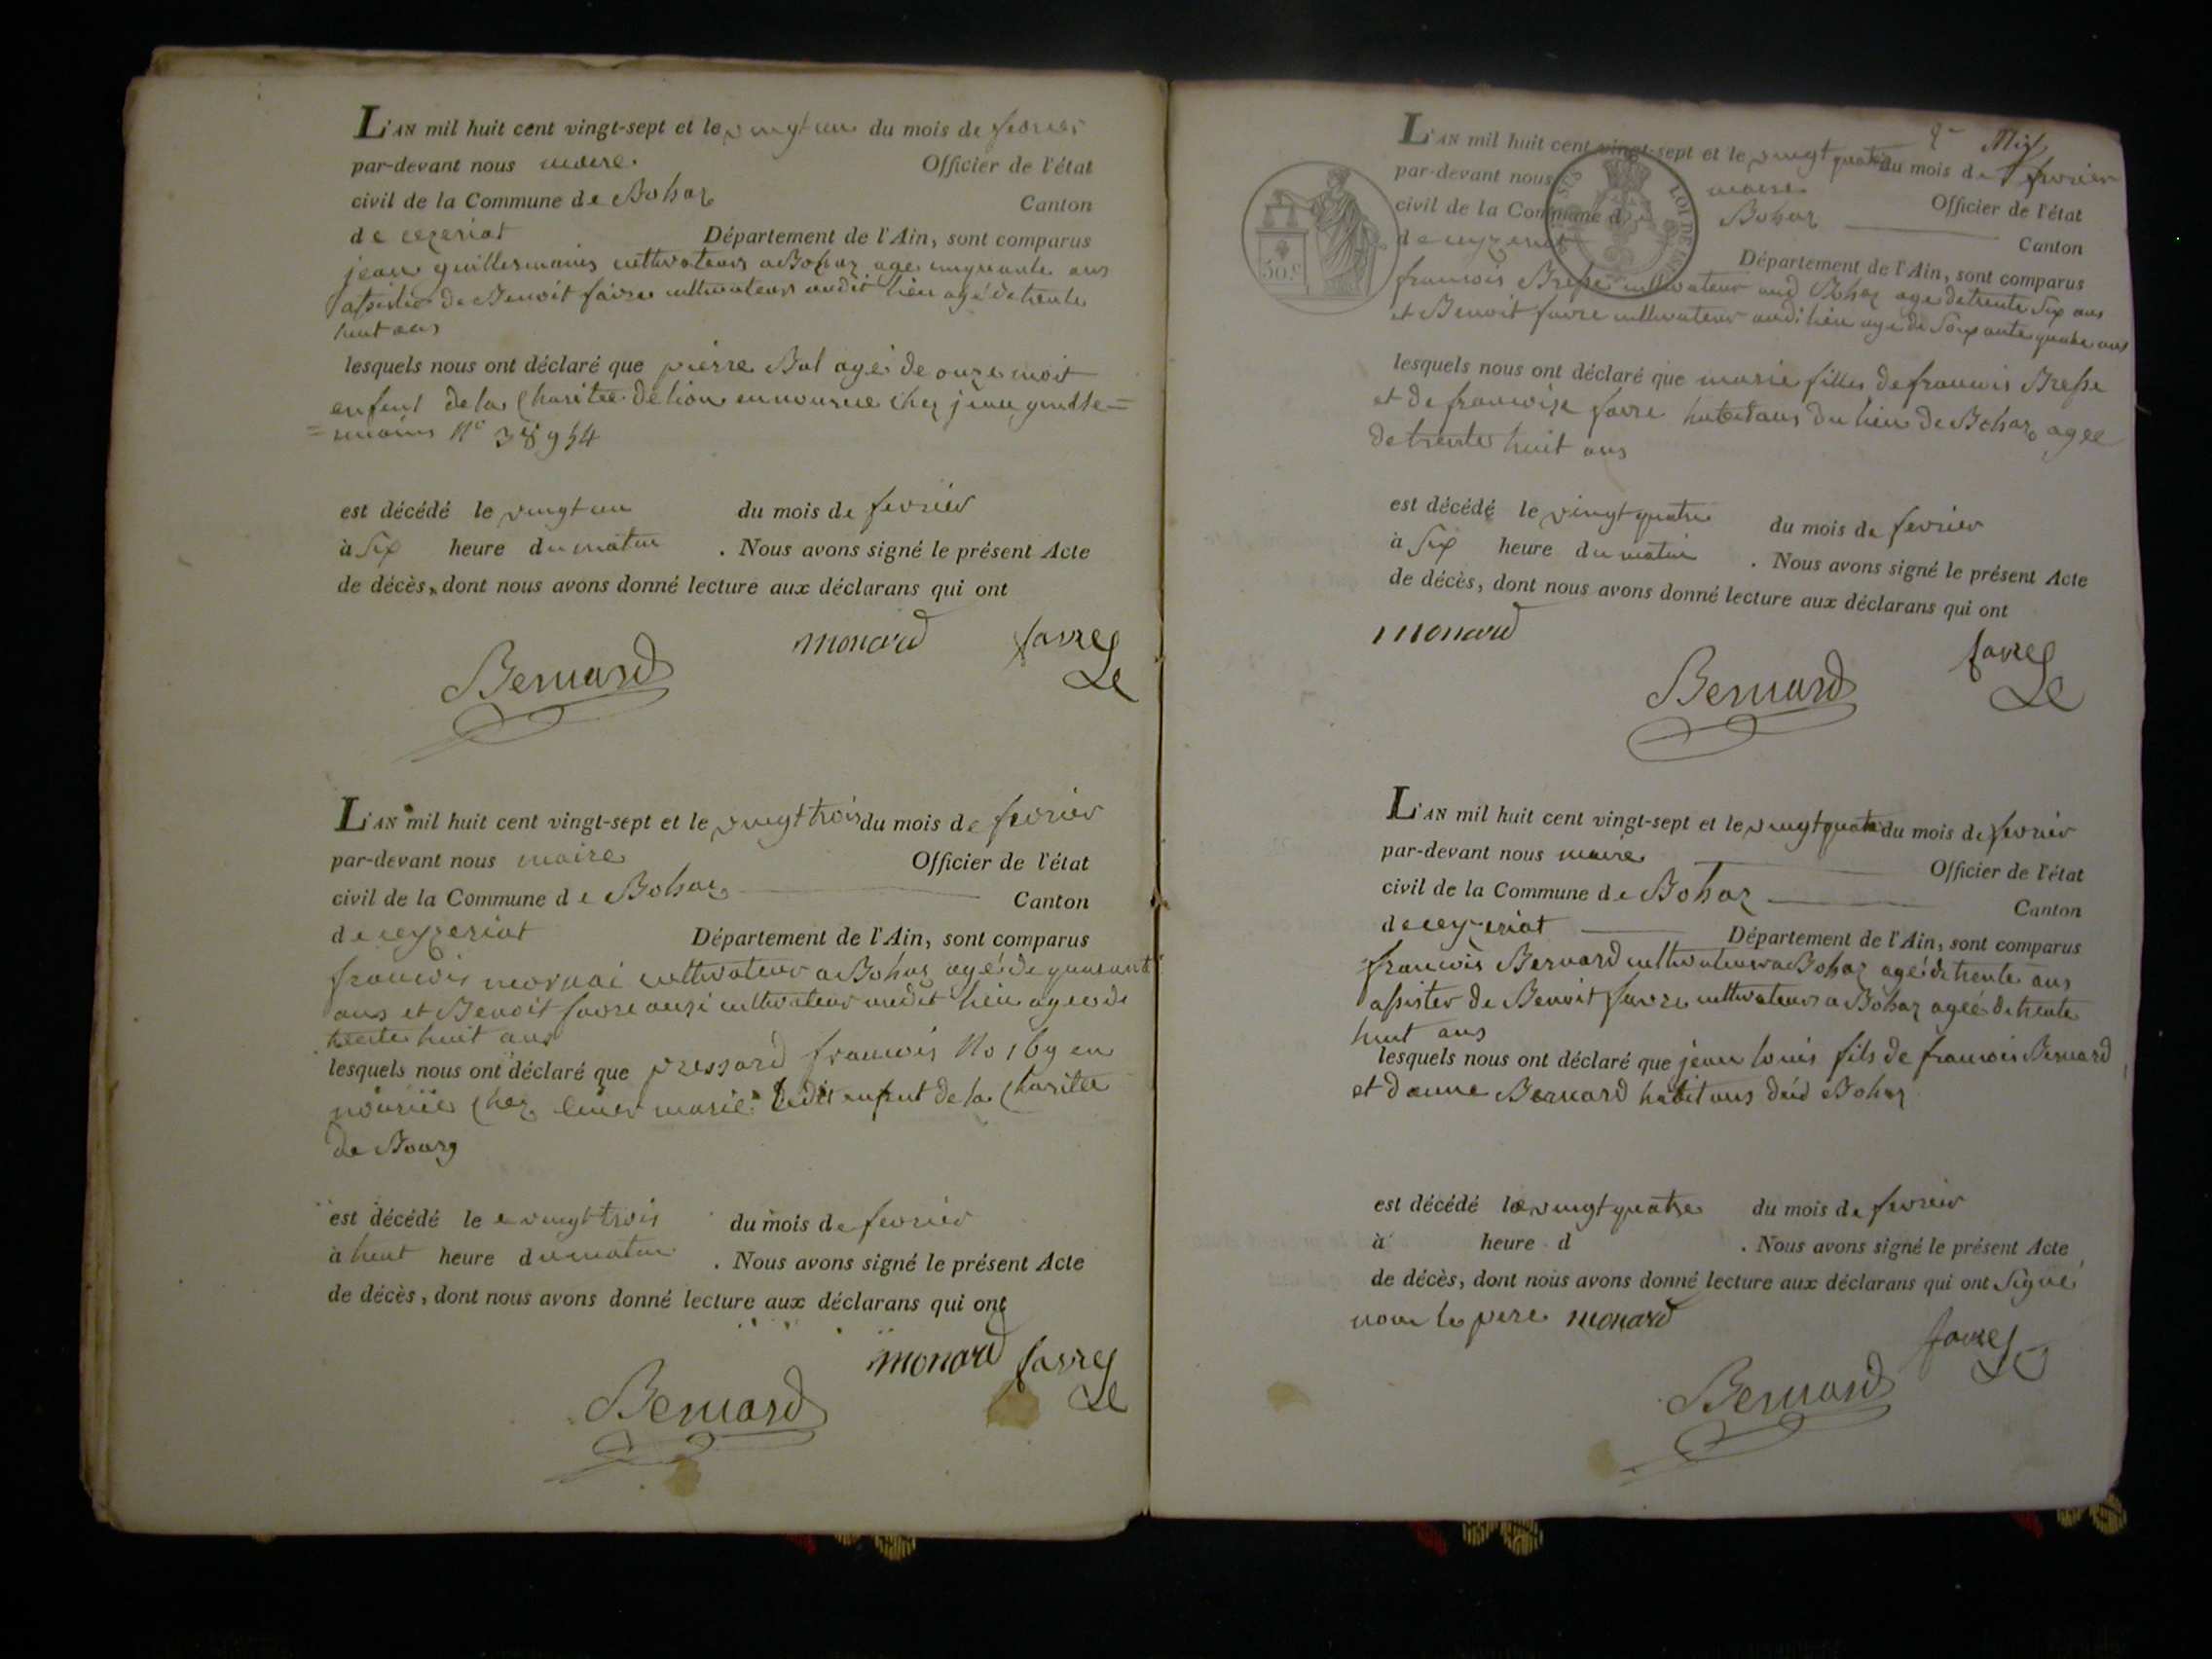 L'AN mil huit cent vingt-sept et le vingt un du mois de fevrier
par-devant nous maire Officier de l'état
civil de la Commune de Bohaz Canton
de cezeriat Département de l'Ain, sont comparus
jean guillermains cultivateur a Bohaz age cinquante ans
assister de Benoit favre cultivateur audit lieu agé de trente
huit ans
lesquels nous ont déclaré que pierre Bal agé de onze mois
enfent de la Charitee de lion en nourice chez jean guille=
=rmains N° 38954
est décédé le vingt un du mois de fevrier
à Six heure du matin . Nous avons signé le présent Acte
de décès, dont nous avons donné lecture aux déclarans qui ont
monard favre
Bernard
L'AN mil huit cent vingt-sept et le vingt trois du mois de fevrier
par-devant nous maire Officier de l'état
civil de la Commune de Bohaz Canton
de ceyzeriat Département de l'Ain, sont comparus
francois cultivateur a Bohaz agé de quarant
ans et Benoit favre ausi cultivateur audit lieu agee de
trente huit ans
lesquels nous ont déclaré que pressard francois No 169 en
nourice chez marie enfent de la Charitee
de Bourg
est décédé le vingt trois du mois de fevrier
à huit heure du matin . Nous avons signé le présent Acte
de décès, dont nous avons donné lecture aux déclarans qui ont
monard favre
Bernard
L'AN mil huit cent vingt-sept et le vingt quatre du mois de fevrier
par-devant nous maire Officier de l'état
civil de la Commune de Bohaz Canton
de ceyzeriat Département de l'Ain, sont comparus
francois Bresse cultivateur aud Bohaz age de trente Six ans
et Benoit favre cultivateur audi lieu age de Soixante quatre ans
lesquels nous ont déclaré que marie filles de francois Bresse
et de francoise favre habitans du lieu de Bohaz agee
de trente huit ans
est décédé le vingt quatre du mois de fevrier
à Six heure du matin . Nous avons signé le présent Acte
de décès, dont nous avons donné lecture aux déclarans qui ont
monard favre
Bernard
50.c
LOI DE
L'AN mil huit cent vingt-sept et le vingt quatre du mois de fevrier
par-devant nous maire Officier de l'état
civil de la Commune de Bohaz Canton
de ceyzeriat Département de l'Ain, sont comparus
francois Bernard cultivateur a Bohaz agé de trente ans
assister de Benoit favre cultivateur a Bohaz ageé de trente
huit ans
lesquels nous ont déclaré que jean louis fils de francois Bernard
et d anne Bernard habitans dud Bohaz
est décédé le vingt quatre du mois de fevrier
à heure d . Nous avons signé le présent Acte
de décès, dont nous avons donné lecture aux déclarans qui ont Signé
non le pere monard
favre
Bernard